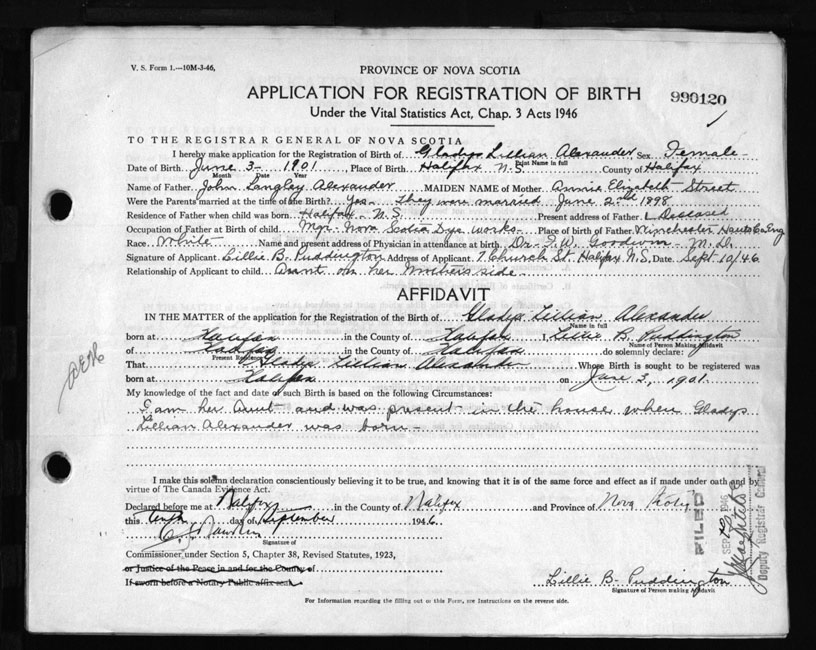 V. S. Form 1.—10M-3-46,
PROVINCE OF NOVA SCOTIA
APPLICATION FOR REGISTRATION OF BIRTH
990120
Under the Vital Statistics Act, Chap. 3 Acts 1946
1
TO THE REGISTRAR GENERAL OF NOVA SCOTIA
I hereby make application for the Registration of Birth of Gladys Lillian Alexander Sex Female
Print Name in full
Date of Birth June 3 - 1901 Place of Birth Halifax N.S. County of Halifax
Month Date Year
Name of Father John Langley Alexander MAIDEN NAME of Mother Annie Elizabeth Street
Were the Parents married at the time of the Birth? Yes - They were married June 2nd 1898
Residence of Father when child was born Halifax - N.S. Present address of Father Deseased
Occupation of Father at Birth of child Mgr. Nova Scotia Dye works - Place of birth of Father Winchester Hants Co Eng
Race White Name and present address of Physician in attendance at birth Dr. F. W. Goodwin - M.D.
Signature of Applicant Lillie B. Puddington Address of Applicant 7 Church St. Halifax N.S. Date Sept 10/46
Relationship of Applicant to child Aunt on her Mothers side -
AFFIDAVIT
IN THE MATTER of the application for the Registration of the Birth of Gladys Lillian Alexander
Name in full
born at Halifax in the County of Halifax I, Lillie B. Puddington
Name of Person Making Affidavit
of Halifax in the County of Halifax do solemnly declare:
Present Residence
That Gladys Lillian Alexander Whose Birth is sought to be registered was
born at Halifax on June 3, 1901
My knowledge of the fact and date of such Birth is based on the following Circumstances:
I am her Aunt - and was present - in the house when Gladys
Lillian Alexander was born -
I make this solemn declaration conscientiously believing it to be true, and knowing that it is of the same force and effect as if made under oath and by
virtue of The Canada Evidence Act.
Declared before me at Halifax in the County of Halifax and Province of Nova Scotia
this Tenth day of September 1946
Signature of
Commissioner under Section 5, Chapter 38, Revised Statutes, 1923,
or Justice of the Peace in and for the County of
If sworn before a Notary Public affix seal.
Lillie B. Puddington
Signature of Person making Affidavit
FILED
SEP 1946
Deputy Registrar General
For Information regarding the filling out of this Form, see Instructions on the reverse side.